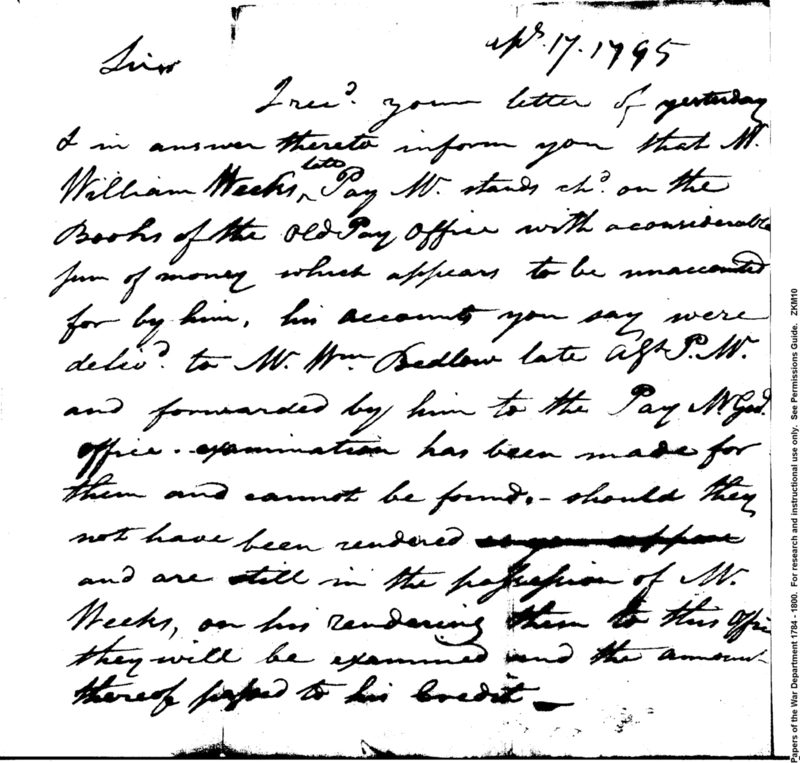 Apl. 17. 1795
Sir
I recd. your letter of yesterday
& in answer thereto inform you that Mr.
William Weeks, late Pay Mr. stands chd. on the
Books of the Old Pay Office with a considerable
sum of money which appears to be unaccounted
for by him, his accounts you say were
delivd. to Mr. Wm. Bedlow late Asst. P. Mr.
and forwarded by him to the Pay Mr. Genl.
office. examination has been made for
them and cannot be found. - should they
not have been rendered as you suppose
and are still in the possession of Mr.
Weeks, on his rendering them to this Office
they will be examined and the amount
thereof passed to his Credit —
Papers of the War Department 1784 - 1800. For research and instructional use only. See Permissions Guide. ZKM10